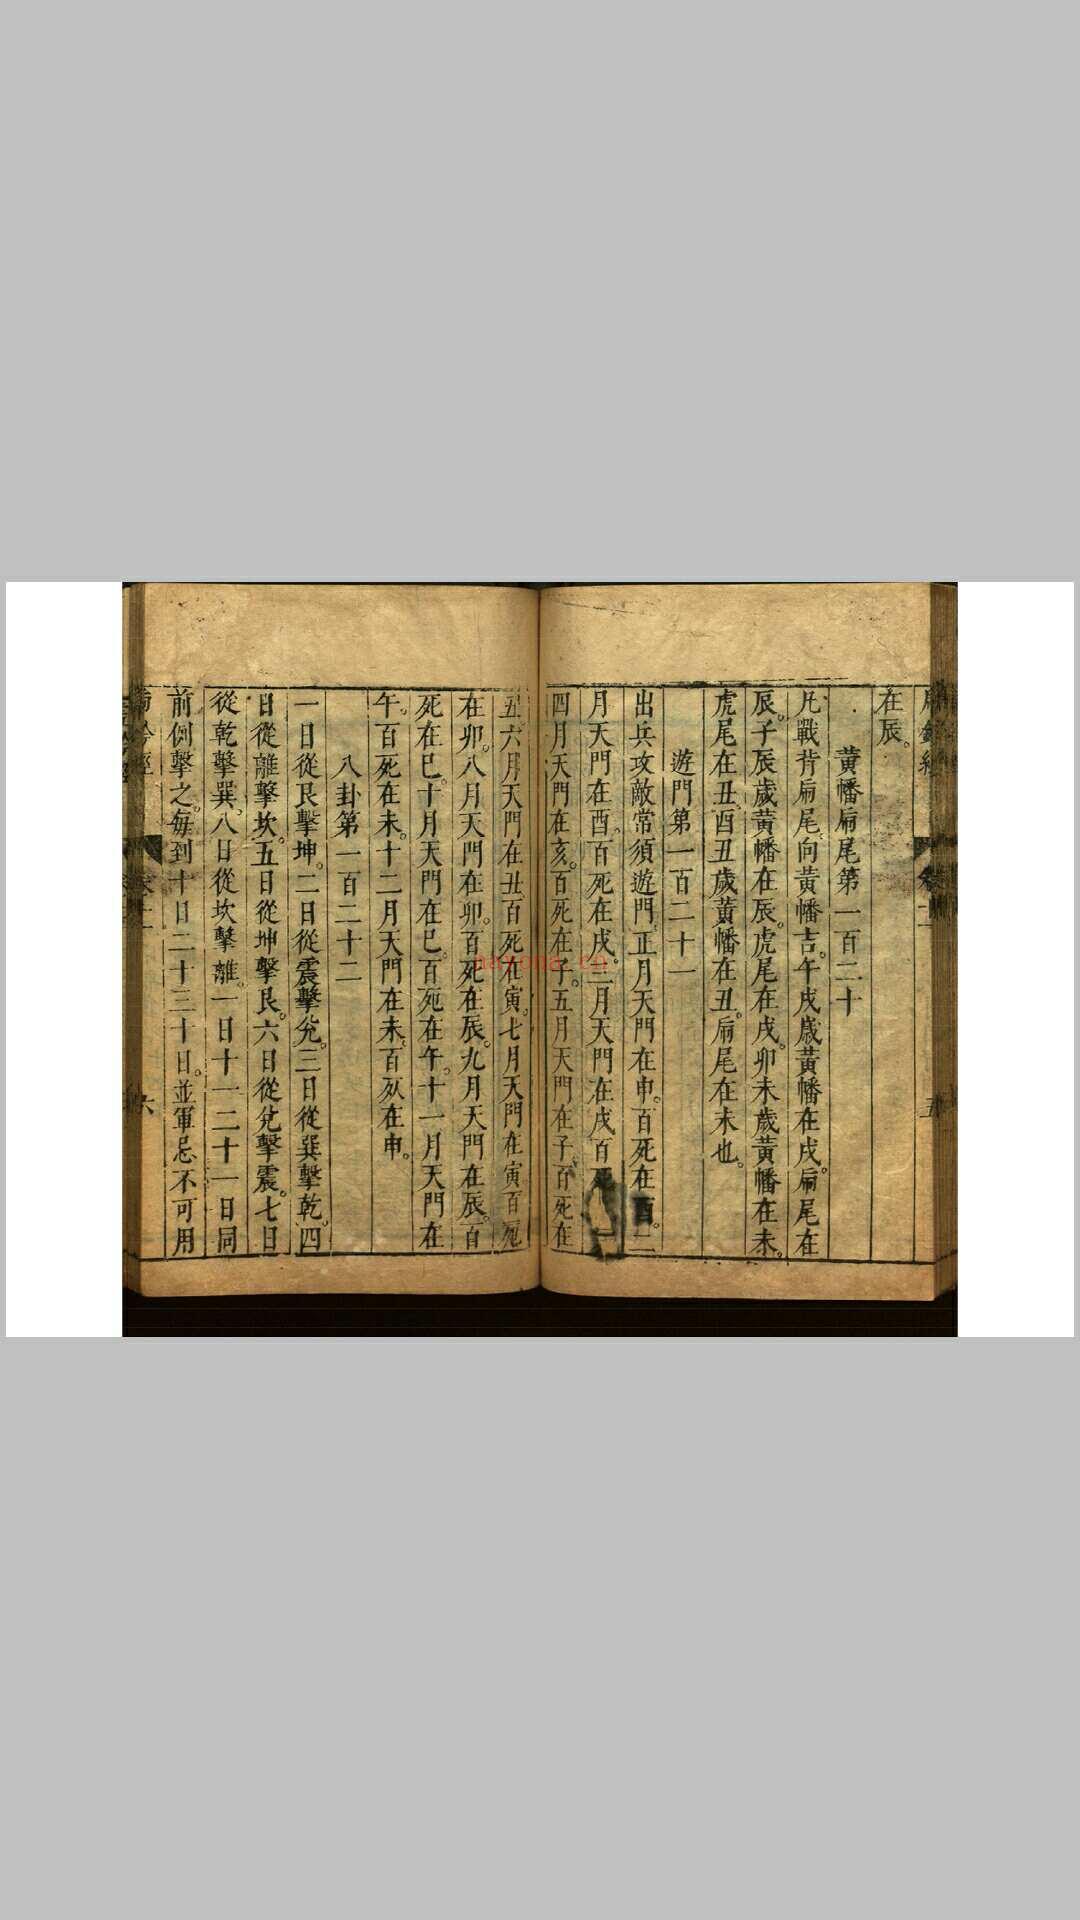 在辰。
黃幡扁尾第一百二十
凡戰背扁尾。向黃幡吉。午戌歲黃幡在戌。扁尾在
辰。子辰歲黃幡在辰。虎尾在戌。卯未歲黃幡在未。
虎尾在丑。酉丑歲黃幡在丑。扁尾在未也。
遊門第一百二十一
出兵攻敵常須遊門。正月天門在申。百死在酉。二
月天門在酉。百死在戌。三月天門在戌百死
四月天門在亥。百死在子。五月天門在子百死在
丑六月天門在丑百死在寅。七月天門在寅百死
在卯。八月天門在卯。百死在辰。九月天門在辰。百
死在巳。十月天門在巳。百死在午。十一月天門在
午。百死在未。十二月天門在未。百死在申。
八卦第一百二十二
一日從艮擊坤。二日從震擊兌。三日從巽擊乾。四
日從離擊坎。五日從坤擊艮。六日從兌擊震。七日
從乾擊巽。八日從坎擊離。一日十一二十一日同
前例擊之。每到十日二十三十日。並軍忌不可用
五
六
nayona.cn